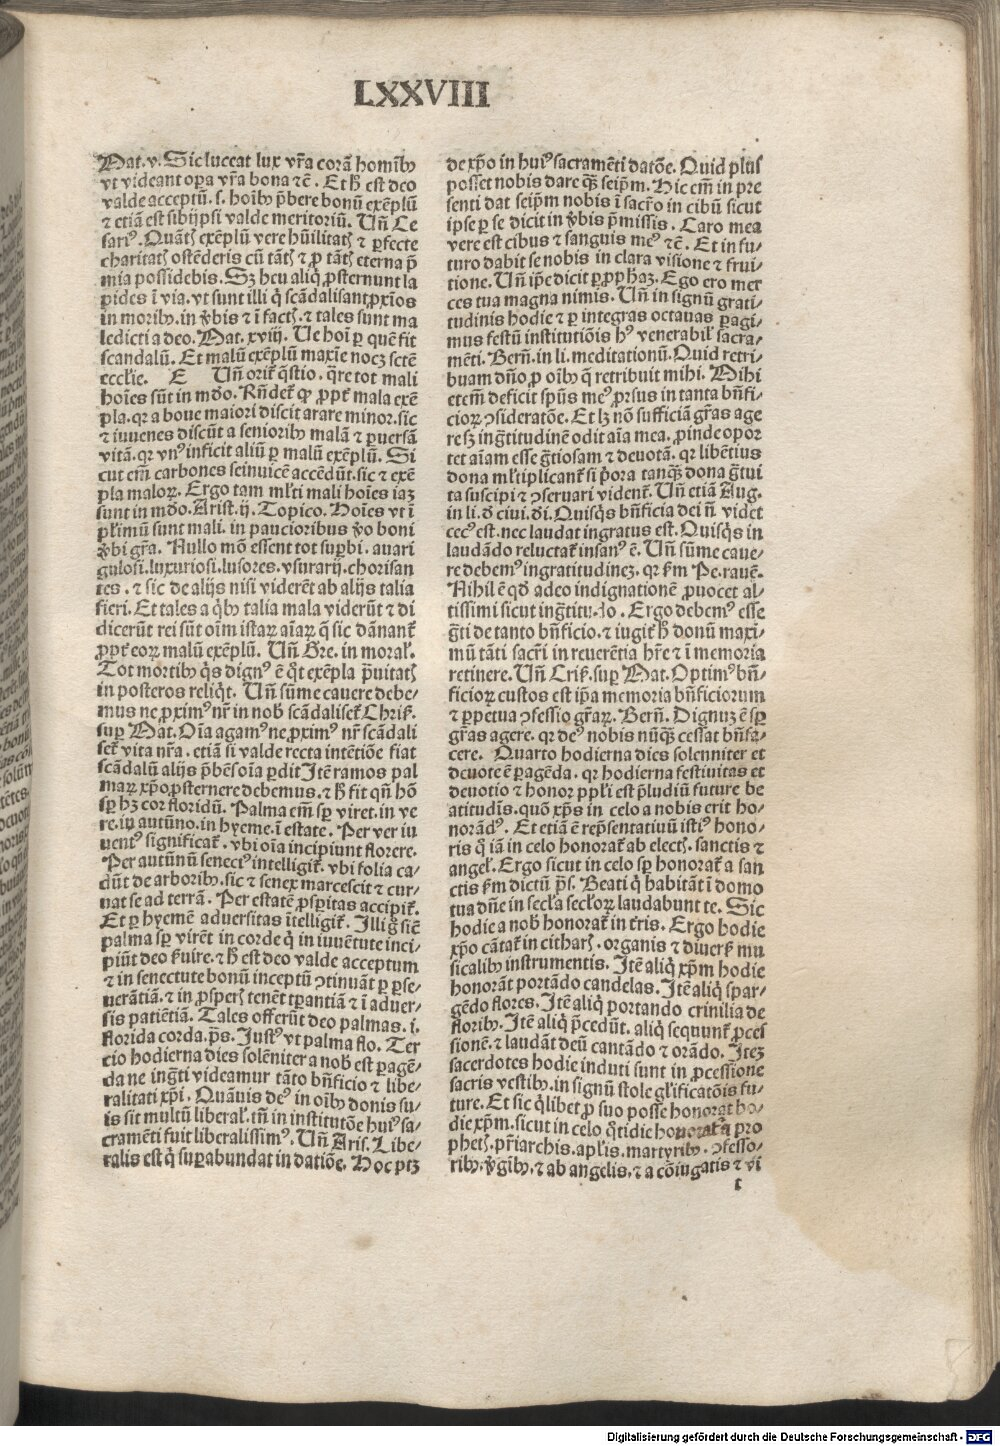 LXXVIII
Mat. v. Sic luceat lux vr̃a corã homĩbꝰ
vt videant oꝑa vr̃a bona ⁊c̃. Et hͦ est deo
valde acceptũ. s. hoĩbꝰ p̃bere bonũ exẽplũ
⁊ etiã est sibijpsi valde meritoriũ. Uñ Ce
sariꝰ. Quãtũ exẽplũ vere hũilitatꝭ ⁊ ꝑfecte
charitatꝭ ostẽderis cũ tãtꝭ ⁊ ꝓ tãtꝭ eterna p̃
mia possidebis. Sꝫ heu aliq̃ ꝓsternunt la
pides ĩ via. vt sunt illi q̃ scãdalisant ꝓxĩos
in moribꝰ. in v̾bis ⁊ ĩ factꝭ. ⁊ tales sunt ma
ledicti a deo. Mat. xviij. Ue hoĩ ꝑ quẽ fit
scandalũ. Et malũ exẽplũ maxĩe nocꝫ sctẽ
eccľie. E Uñ orit᷑ q̃stio. q̃re tot mali
hoĩes sũt in mũdo. Rñdet᷑ ꝙ ꝓpt᷑ mala exẽ
pla. qꝛ a boue maiori discit arare minor. sic
⁊ iuuenes discũt a senioribꝰ malã ⁊ ꝑuersã
vitã. qꝛ vnꝰ inficit aliũ ꝑ malũ exẽplũ. Si
cut em̃ carbones seinuicẽ accẽdũt. sic ⁊ exẽ
pla maloꝝ. Ergo tam ml̃ti mali hoĩes iaꝫ
sunt in mũdo. Arist. ij. Topico. Hoĩes vt ĩ
pl̃imũ sunt mali. in paucioribus v̾o boni
v̾bi gr̃a. Nullo mõ essent tot suꝑbi. auari
gulosi. luxuriosi. lusores. vsurarij. chorisan
tes. ⁊ sic de alijs nisi viderẽt ab alijs talia
fieri. Et tales a q̃bꝰ talia mala viderũt ⁊ di
dicerũt rei sũt oĩm istaꝝ aĩaꝝ q̃ sic dãnant᷑
ꝓpt᷑ eoꝝ malũ exẽplũ. Uñ Gre. in moral̃.
Tot mortibꝰ q̃s dignꝰ ẽ q̃t exẽpla p̃uitatꝭ
in posteros reliq̃t. Uñ sũme cauere debe-
mus ne ꝓximꝰ nr̃ in nob̃ scãdaliset᷑ Chriſ.
suꝑ Mat. Oĩa agamꝰ ne ꝓximꝰ nr̃ scãdali
set᷑ vita nr̃a. etiã si valde recta intẽtiõe fiat
scãdalũ alijs p̃bẽs oĩa ꝑdit Itẽ ramos pal
maꝝ xp̃o ꝓsternere debemus. ⁊ hͦ fit qñ hõ
sꝑ hꝫ cor floridũ. Palma em̃ sꝑ viret. in ve
re. in autũno. in hyeme. ĩ estate. Per ver iu
uentꝰ significat᷑. vbi oĩa incipiunt florere.
Per autũnũ seneciꝰ intelligit᷑. vbi folia ca-
dũt de arboribꝰ. sic ⁊ senex marcescit ⁊ cur-
uat se ad terrã. Per estatẽ ꝓsperitas accipit᷑.
Et ꝑ hyemẽ aduersitas ĩtelligit᷑. Ill̃i g̃ siẽ
palma sꝑ virẽt in corde q̃ in iuuẽtute inci-
piũt deo s̾uire. ⁊ hͦ est deo valde acceptum
⁊ in senectute bonũ inceptũ ꝯtinuãt ꝑ ꝑse-
uerãtiã. ⁊ in ꝓsperꝭ tenẽt tꝑantiã ⁊ ĩ aduer-
sis patiẽtiã. Tales offerũt deo palmas. i.
florida corda. p̃s. Justꝰ vt palma flo. Ter
cio hodierna dies solẽniter a nob̃ est ꝑagẽ-
da ne ingr̃ti videamur tãto bñficio ⁊ libe-
ralitati xp̃i. Quãuis deꝰ in oĩbꝰ donis su-
is sit multũ liberal̃. tñ in institutõe huiꝰ sa-
cramẽti fuit liberalissimꝰ. Uñ Aris. Libe-
ralis est q̃ suꝑabundat in datiõe. Hoc ptꝫ
de xp̃o in huiꝰ sacramẽti datõe. Quid plus
posset nobis dare q̃ꝫ seip̃m. Hic em̃ in pre
senti dat seip̃m nobis ĩ sacr̃o in cibũ sicut
ipse per se dicit in v̾bis p̃missis. Caro mea
vere est cibus ⁊ sanguis meꝰ ⁊c̃. Et in fu-
turo dabit se nobis in clara visione ⁊ frui-
tione. Uñ ip̃e dicit ꝑ ꝓphetaꝫ. Ego ero mer
ces tua magna nimis. Uñ in signũ grati-
tudinis hodie ⁊ ꝑ integras octauas ꝑagi-
mus festũ institutiõis hꝰ venerabil̃ sacra-
mẽti. Berñ. in li. meditationũ. Quid retri-
buam dño ꝓ oĩbꝰ q̃ retribuit mihi. Mihi
etem̃ deficit sp̃us meꝰ ꝓrsus in tanta bñfi-
cioꝝ ꝯsideratõe. Et lꝫ nõ sufficiã gr̃as age
re sꝫ ingr̃titudinẽ odit aĩa mea. ꝓinde opor
tet aĩam esse gr̃tiosam ⁊ deuotã. qꝛ libẽtius
dona ml̃tiplicant᷑ si p̃ora tanq̃ꝫ dona gr̃tui
ta suscipi ⁊ ꝯseruari vident᷑. Uñ etiã Aug.
in li. d̾ ciui. d̃i. Quisq̃s bñficia dei ñ videt
cecꝰ est. nec laudat ingratus est. Quisq̃s in
laudãdo reluctat᷑ insanꝰ ẽ. Uñ sũme caue-
re debemꝰ ingratitudineꝫ. qꝛ s̾m Pe. rauẽ.
Nihil ẽ qd̾ adeo indignationẽ ꝓuocet al-
tissimi sicut ingr̃titudo. Ergo debemꝰ esse
gr̃ti de tanto bñficio. ⁊ iugit᷑ hͦ donũ maxi-
mũ tãti sacr̃i in reuerẽtia hr̃e ⁊ ĩ memoria
retinere. Uñ Criſ. suꝑ Mat. Optimꝰ bñ-
ficioꝝ custos est ip̃a memoria bñficiorum
⁊ ꝑpetua ꝯfessio gr̃aꝝ. Berñ. Dignuꝫ ẽ sꝑ
gr̃as agere. qꝛ deꝰ nobis nũq̃ꝫ cessat bñfa-
cere. Quarto hodierna dies solenniter et
deuote ẽ ꝑagẽda. qꝛ hodierna festiuitas et
deuotio ⁊ honor ppl̃i est p̃ludiũ future be
atitudĩs. quõ xp̃s in celo a nobis erit ho-
norãdꝰ. Et etiã ẽ rep̃sentatiuũ istiꝰ hono-
ris q̃ iã in celo honorat᷑ ab electꝭ. sanctis ⁊
angel̃. Ergo sicut in celo sꝑ honorat᷑ a san
ctis s̾m dictũ p̃s. Beati q̃ habitãt ĩ domo
tua dñe in secl̃a secl̃oꝝ laudabunt te. Sic
hodie a nob̃ honorat᷑ in tr̃is. Ergo hodie
xp̃o cãtat᷑ in citharꝭ. organis ⁊ diuersꝭ mu
sicalibꝰ instrumentis. Itẽ aliq̃ xp̃m hodie
honorãt portãdo candelas. Itẽ aliq̃ spar-
gẽdo flores. Itẽ aliq̃ portando crinilia de
floribꝰ. Itẽ aliq̃ p̃cedũt. aliq̃ sequunt᷑ ꝓces
sionẽ. ⁊ laudãt deũ cantãdo ⁊ orãdo. Iteꝫ
sacerdotes hodie induti sunt in ꝓcessione
sacris vestibꝰ. in signũ stole gl̃ificatõis fu-
ture. Et sic q̃libet ꝓ suo posse honorat ho-
die xp̃m. sicut in celo q̃tidie honorat᷑ a pro
phetꝭ. pr̃iarchis. apl̃is. martyribꝰ. ꝯfesso-
ribꝰ. v̾gĩbꝰ. ⁊ ab angelis. ⁊ a cõiugatis ⁊ vi
Digitalisierung gefördert durch die Deutsche Forschungsgemeinschaft - DFG